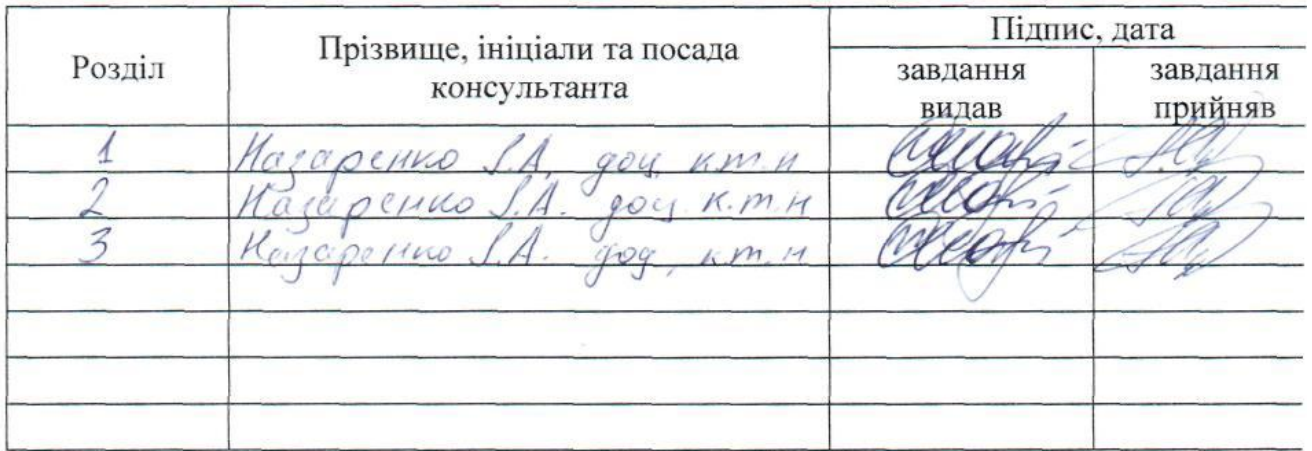 Розділ
Прізвище, ініціали та посада
консультанта
Підпис, дата
завдання
видав
завдання
прийняв
1 Назаренко І.А. доц, к.т.н
2 Назаренко І.А. доц. к.т.н
3 Назаренко І.А. доц, к.т.н